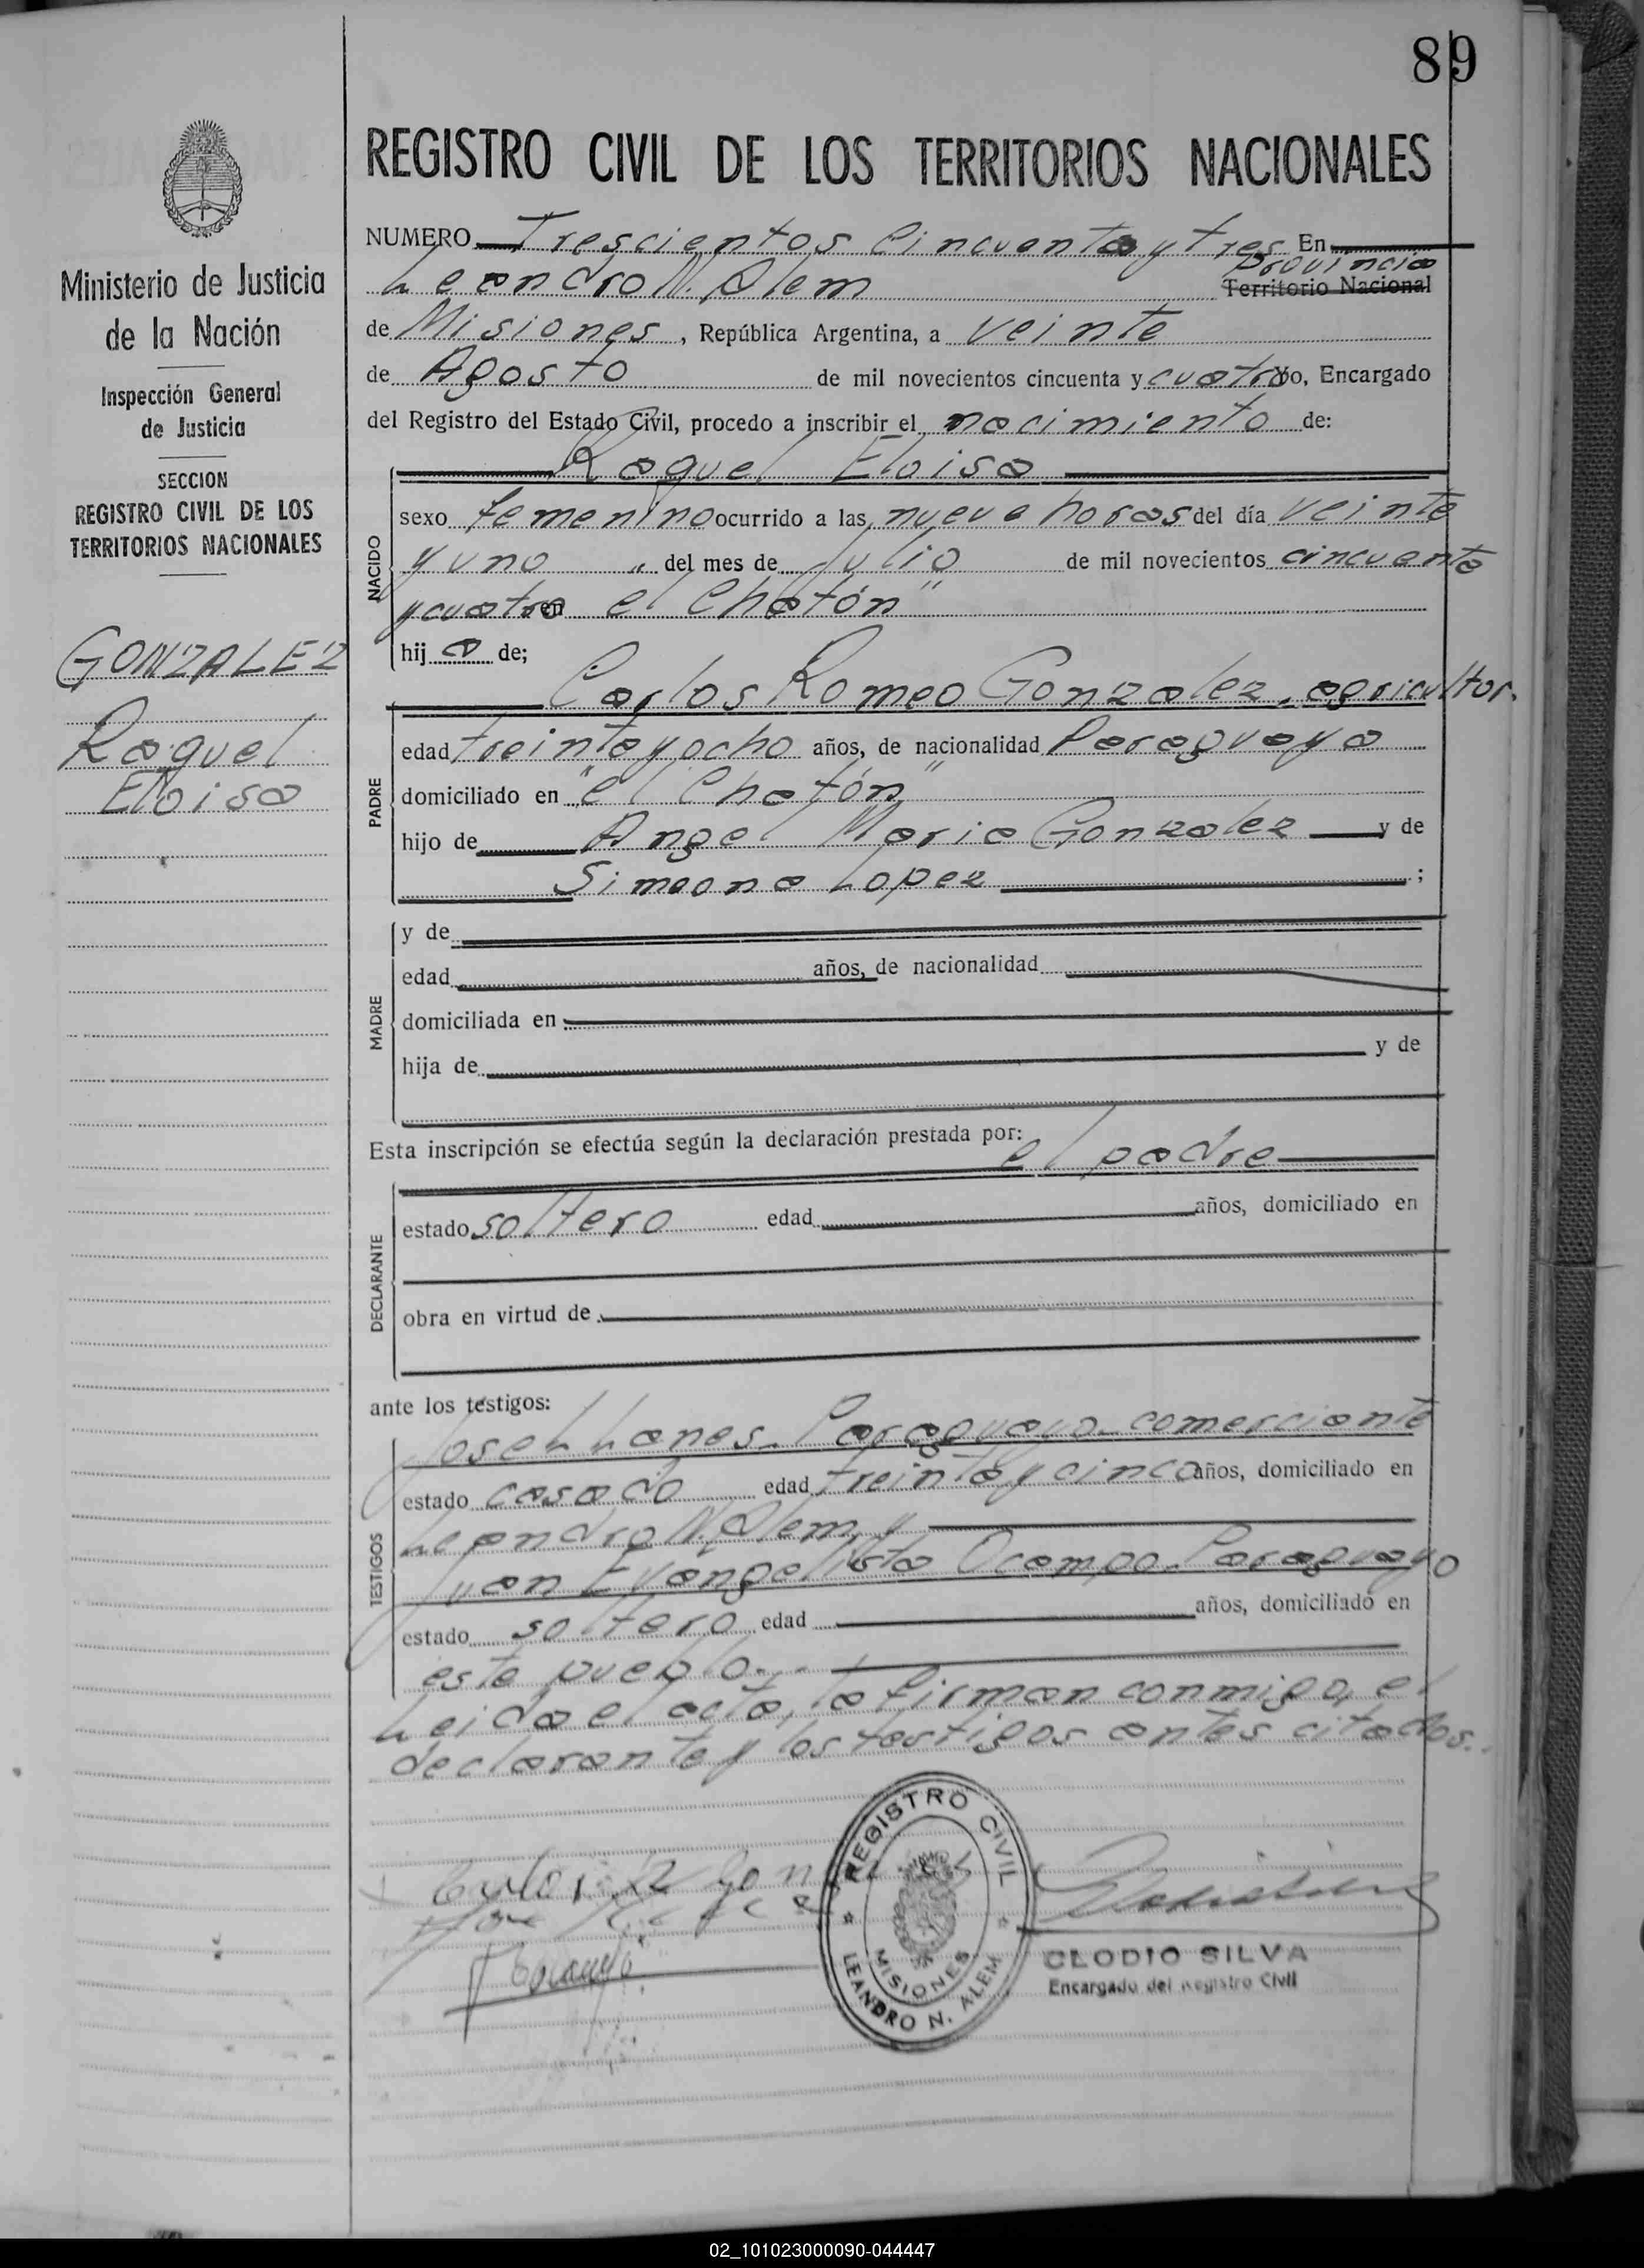 89
REGISTRO CIVIL DE LOS TERRITORIOS NACIONALES
Ministerio de Justicia
de la Nación
Inspección General
de Justicia
SECCION
REGISTRO CIVIL DE LOS
TERRITORIOS NACIONALES
GONZALEZ
Raquel
Eloisa
NUMERO Trescientos Cincuenta y tres En
Provincia
Leandro N. Alem Territorio Nacional
de Misiones, República Argentina, a veinte
de Agosto de mil novecientos cincuenta y cuatro yo, Encargado
del Registro del Estado Civil, procedo a inscribir el nacimiento de:
Raquel Eloisa
NACIDO
sexo femenino ocurrido a las nueve horas del día veinte
y uno del mes de Julio de mil novecientos cincuenta
y cuatro en "el Chatón"
hija de;
Carlos Romeo Gonzalez, agricultor.
PADRE
edad treinta y ocho años, de nacionalidad Paraguaya
domiciliado en "el Chatón"
hijo de Angel Maria Gonzalez y de
Simeona Lopez ;
MADRE
y de
edad años, de nacionalidad
domiciliada en
hija de y de
Esta inscripción se efectúa según la declaración prestada por: el padre
DECLARANTE
estado soltero edad años, domiciliado en
obra en virtud de
ante los testigos:
TESTIGOS
Jose L. Lanes. Paraguayo-comerciante
estado casado edad treinta y cinco años, domiciliado en
Leandro N. Alem, y
Juan Evangelista Ocampo. Paraguayo
estado soltero edad años, domiciliado en
este pueblo.
Leida el acta, la firman conmigo, el
declarante y los testigos antes citados.
REGISTRO CIVIL
MISIONES
LEANDRO N. ALEM
CLODIO SILVA
Encargado del Registro Civil
02_101023000090-044447